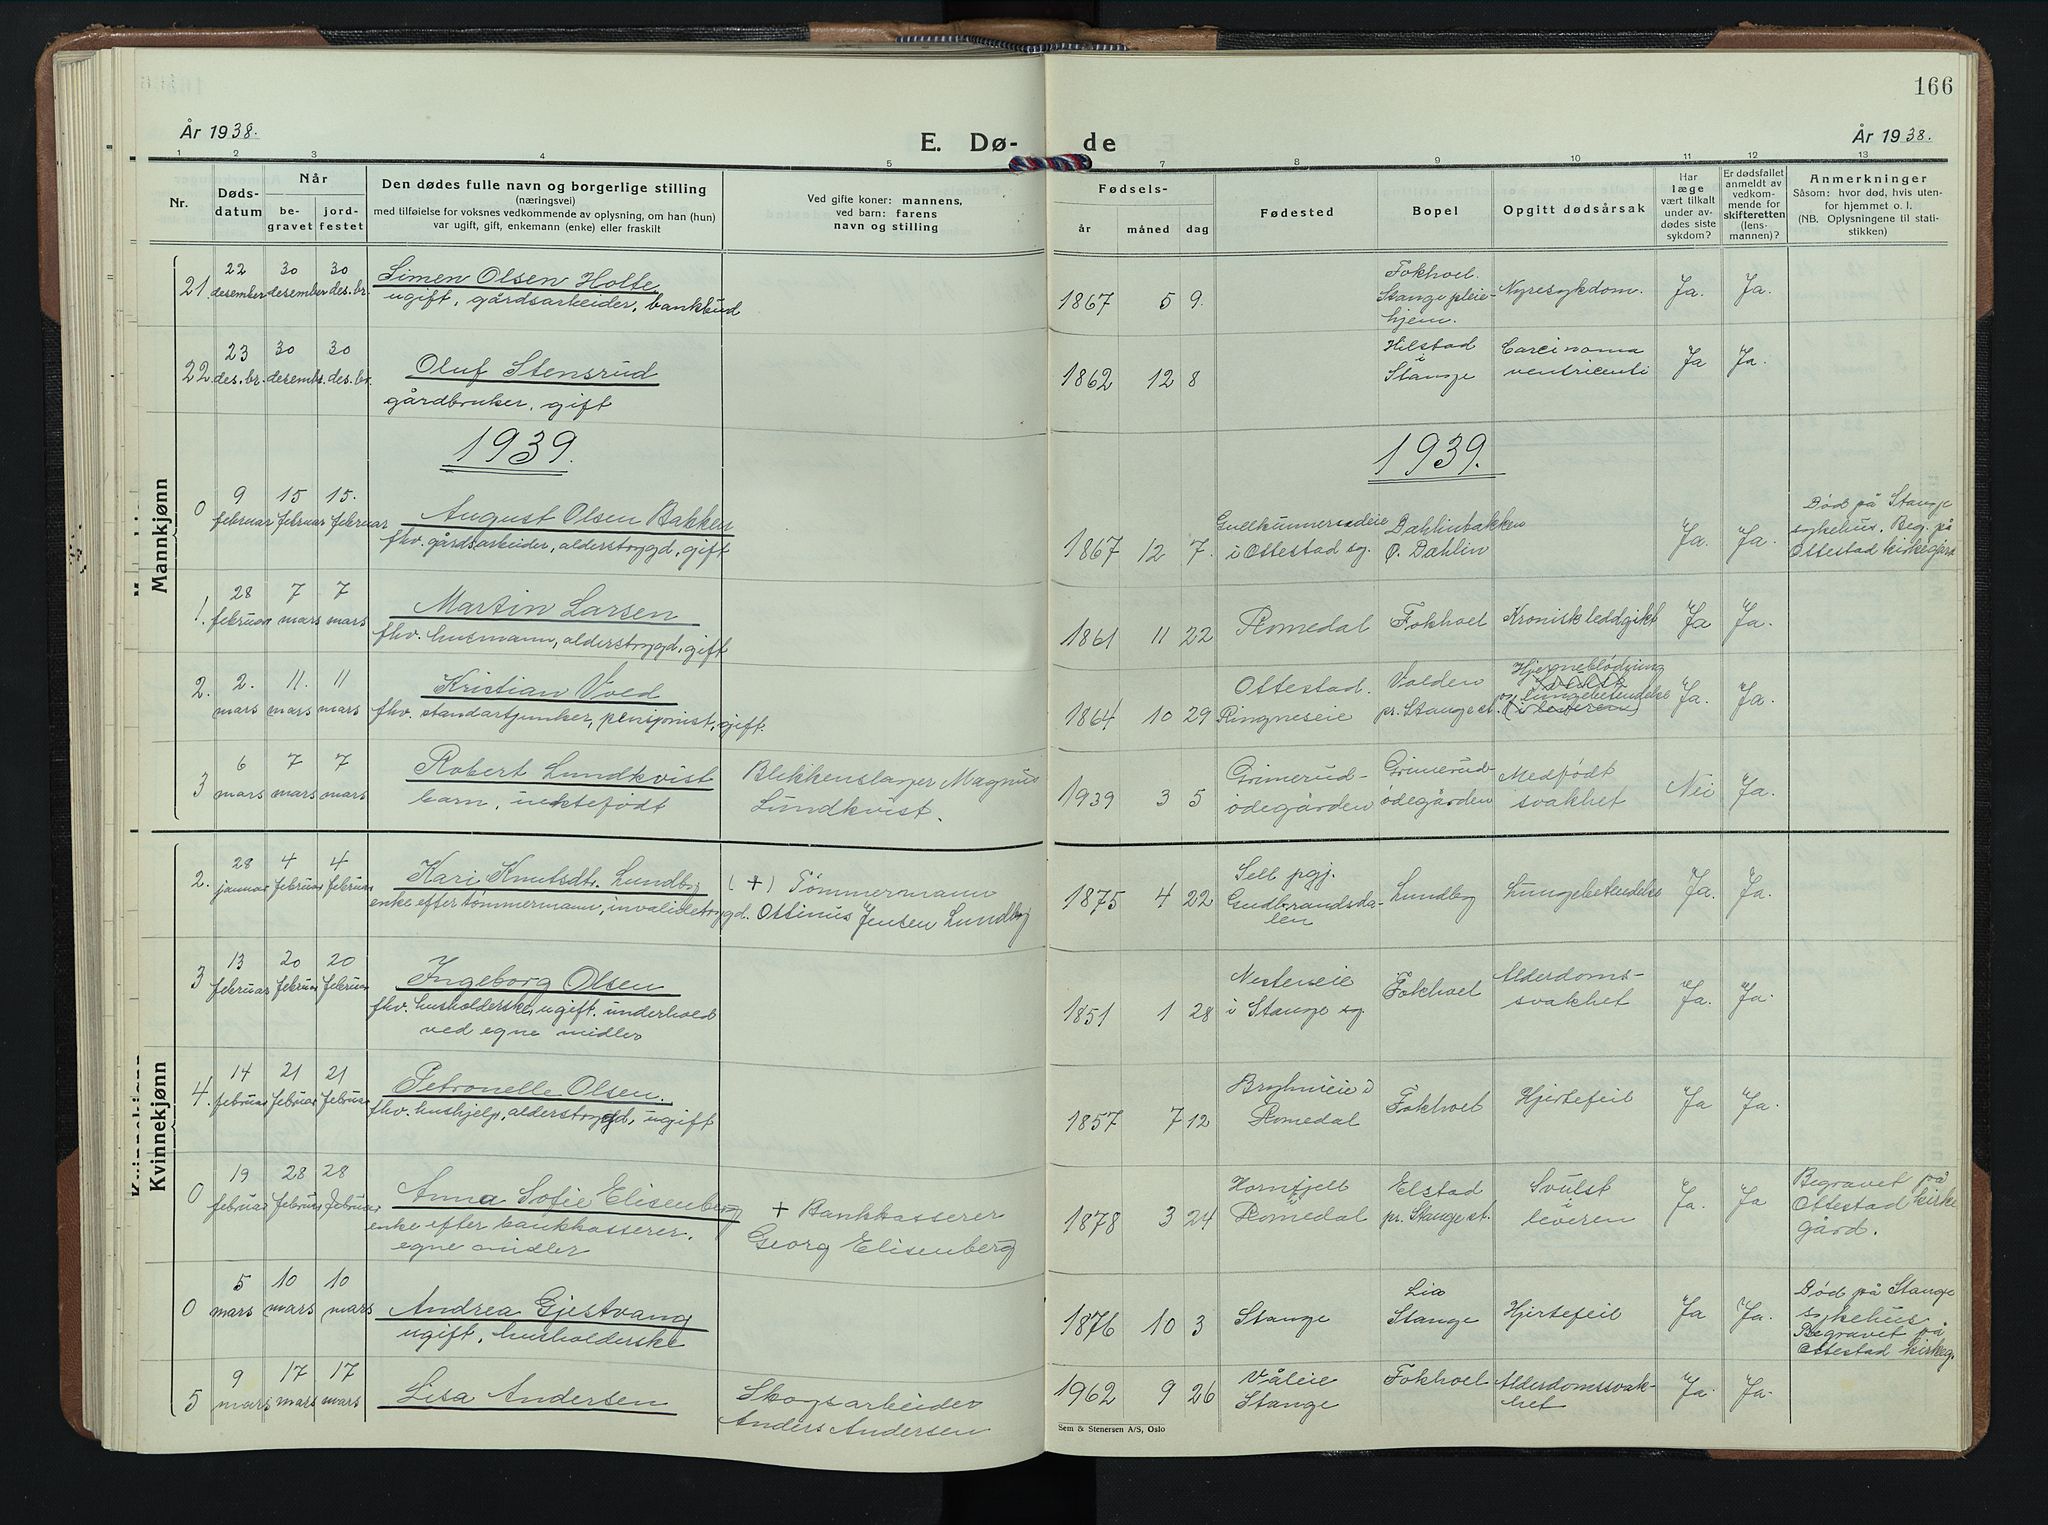 166
År 1938.
E. Dø-
de
År 1938.
1 2 3 4 5 7 8 9 10 11 12 13
Nr.
Døds-
datum
Når
be-
gravet
jord-
festet
Den dødes fulle navn og borgerlige stilling
(næringsvei)
med tilføielse for voksnes vedkommende av oplysning, om han (hun)
var ugift, gift, enkemann (enke) eller fraskilt
Ved gifte koner: mannens,
ved barn: farens
navn og stilling
Fødsels-
år måned dag
Fødested
Bopel
Opgitt dødsårsak
Har
læge
vært tilkalt
under av-
dødes siste
sykdom?
Er dødsfallet
anmeldt av
vedkom-
mende for
skifteretten
(lens-
mannen)?
Anmerkninger
Såsom: hvor død, hvis uten-
for hjemmet o. l.
(NB. Oplysningene til stati-
stikken)
Mannkjønn
21. 22 desember 30 desember 30 des.br.
Simen Olsen Holte
ugift, gårdsarbeider, bankbud
1867 5 9.
Fokhoel.
Stange pleie-
hjem.
Nyresykdom.
Ja. Ja.
22 23 des.br. 30 desemb. 30 des.br.
Oluf Stensrud
gårdbruker, gift
1862 12 8
Hilstad
i
Stange
Carcinoma
ventricenli
Ja Ja.
1939.
1939.
0 9 februar 15 februar 15. februar
August Olsen Bakken
fhv. gårdsarbeider, alderstrygd, gift
1867 12 7.
i Ottestad sg.
Dahlinbakken
Ø. Dahlin
Ja. Ja.
Død på Stange
sykehus. Beg. på
Ottestad kirkegård
1. 28 februar 7 mars 7 mars
Martin Larsen
fhv. husmann, alderstrygd, gift
1861 11 22
Romedal
Fokhoel
Kronisk leddgikt
Ja Ja.
2. 2. mars 11. mars 11 mars
Kristian Vold
fhv. standartjunker, pensjonist, gift.
1864 10 29
Ottestad.
Ringneseie
Volden
pr. Stange st.
Hjerneblødning
og lungebetendelse
(i leveren)
Ja. Ja.
3 6 mars 7 mars 7 mars
Robert Lundkvist
barn, uektefødt
Blikkenslager Magnus
Lundkvist.
1939 3 5
Grimerud-
ødegården
Grimerud-
ødegården
Medfødt
svakhet
Nei Ja.
Kvinnekjønn
2. 28 januar 4 februar 4 februar
Kari Knutsdtr. Lundby
enke efter tømmermann, invalidetrygd.
(+) Tømmermann
Ottinus Jensen Lundby
1875 4 22
Sell pgj.
Gudbrandsda-
len
Lundby
Lungebetendelse
Ja. Ja.
3 13 februar 20 februar 20 februar
Ingeborg Olsen
fhv. husholderske, ugift. underhold
ved egne midler
1851 1 28
Nesteneie
i Stange sg
Fokhoel
Alderdoms-
svakhet
Ja. Ja.
4. 14 februar 21 februar 21 februar
Petronelle Olsen.
fhv. hushjelp, alderstrygd, ugift
1857 7 12
Bryhnieie i
Romedal
Fokhoel
Hjertefeil
Ja Ja.
0 19 februar 28 februar 28 februar
Anna Sofie Elisenberg
enke efter bankkasserer.
egne midler
+ Bankkasserer
Georg Elisenberg
1878 3 24
Hornfjell
i
Romedal
Elstad
pr. Stange st.
Svulst
i
leveren
Ja. Ja
Begravet på
Ottestad kirke
gård.
0 5 mars 10 mars 10 mars
Andrea Gjestvang
ugift, husholderske
1876 10 3
Stange
Lia
Stange
Hjertefeil
Ja Ja.
Død på Stange
sykehus
Begravet på
Ottestad kirkeg.
5 9 mars 17 mars 17 mars
Lisa Andersen
Skogsarbeider
Anders Andersen
1962 9 26
Våleie
Stange
Fokhoel
Alderdomssvak-
het
Ja. Ja.
Sem & Stenersen A/S, Oslo